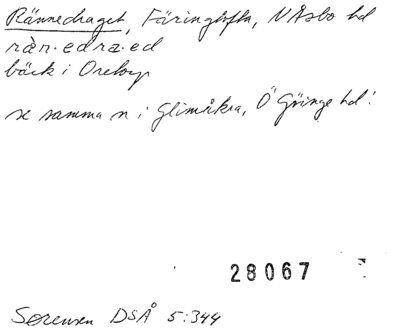 Rännedraget, Färingtofta, N Åsbo hd
rän·edra·ed
bäck i Oretorp
se samma n i Glimåkra, Ö Göinge hd!
28067
Sørensen DSÅ 5:344